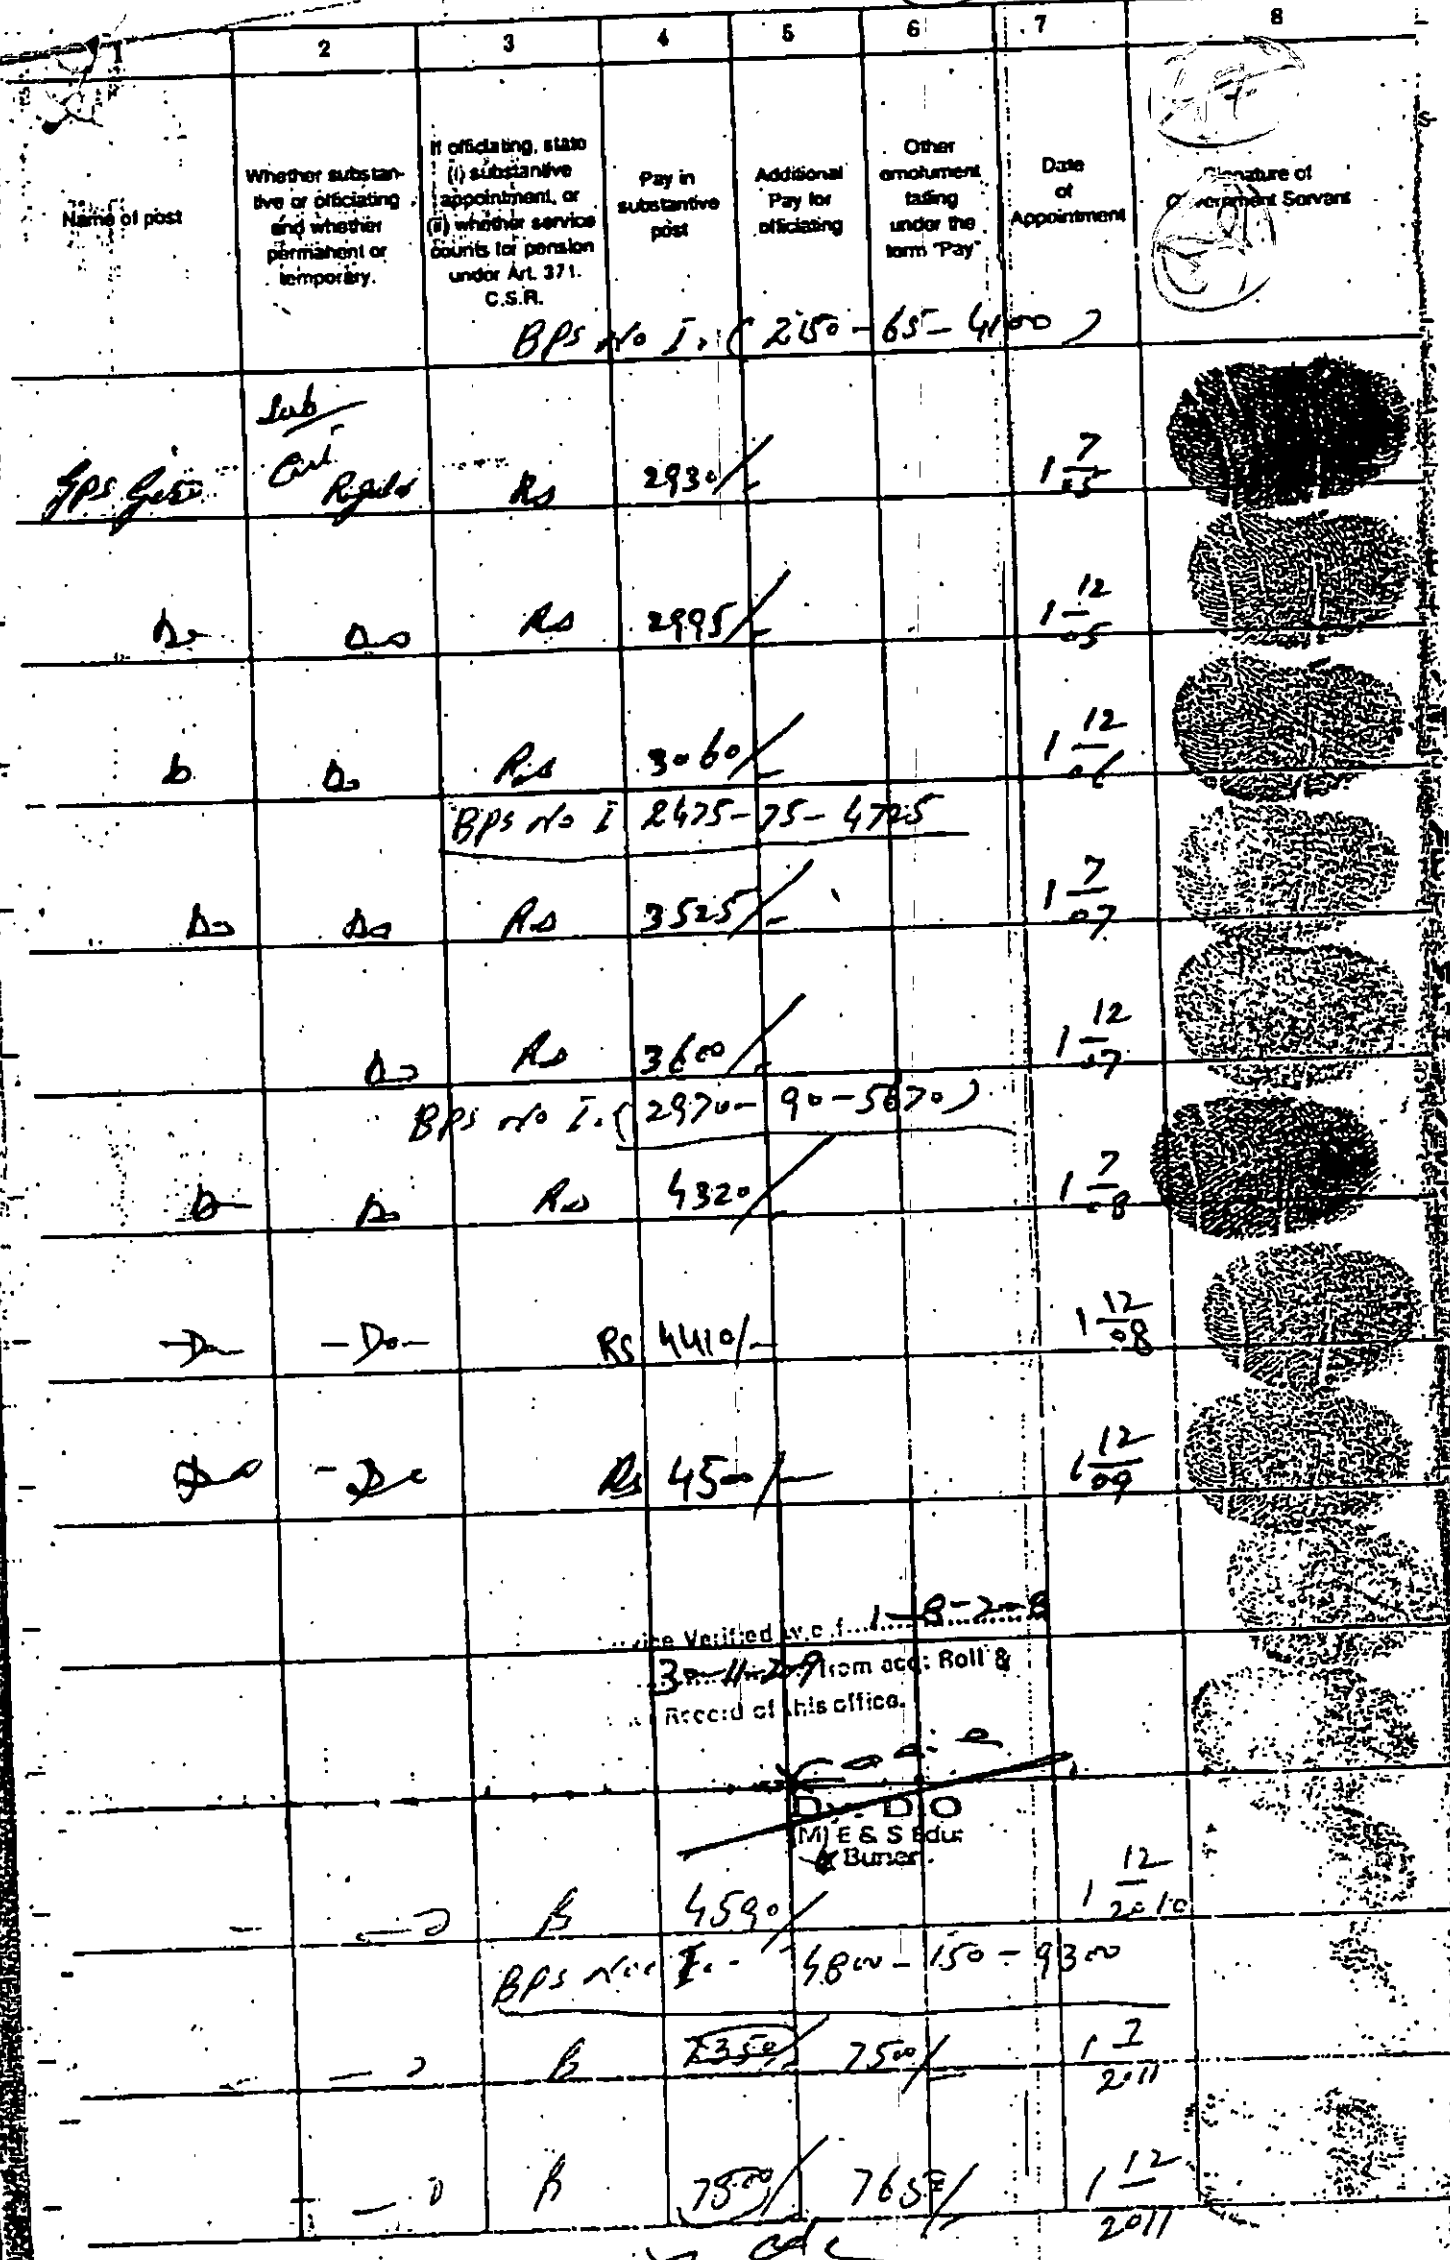 1 2 3 4 5 6 7 8
Name of post
Whether substan-
tive or officiating
and whether
permanent or
temporary.
If officiating, state
(i) substantive
appointment, or
(ii) whether service
counts for pension
under Art. 371.
C.S.R.
Pay in
substantive
post
Additional
Pay for
officiating
Other
emolument
falling
under the
term "Pay"
Date
of
Appointment
Signature of
Government Servant
BPS No I. (2150-65-4100)
Sub
GPS Rs 2930/- 1 7/05
Do Do Rs 2995/- 1 12/05
Do Do Rs 3060/- 1 12/06
BPS No I 2475-75-4725
Do Do Rs 3525/- 1 7/07
Do Rs 3600/- 1 12/07
BPS No I. (2970-90-5670)
Do Do Rs 4320/- 1 7/08
-Do- -Do- Rs 4410/- 1 12/08
Do -Do Rs 4500/- 1 12/09
Verified w.e.f. 1-8-2008
30-11-2009 from acq: Roll &
Record of this office.
Dy. D O
(M) E & S Edu:
Buner.
4590/ 1 12/2010
BPS No I. 4800-150-9300
7350/ 7500/- 1 7/2011
7500/ 7650/- 1 12/2011